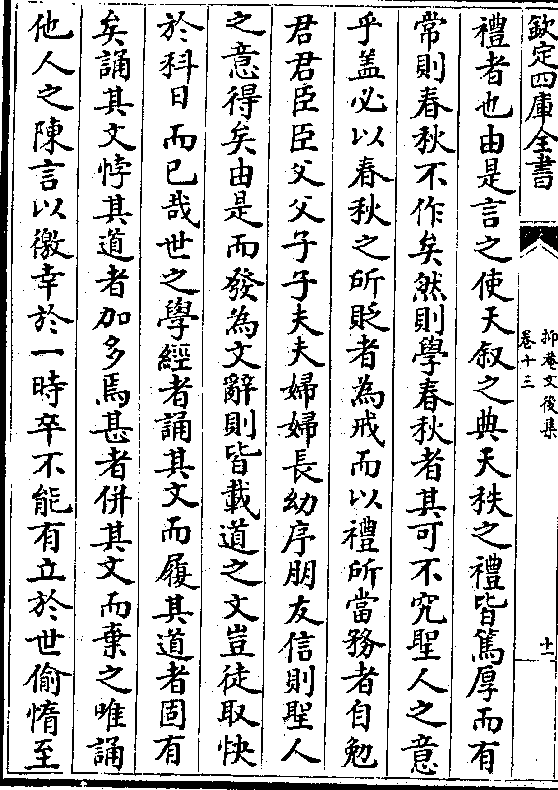 欽定四庫全書
抑菴文後集
卷十三
十一
禮者也由是言之使天叙之典天秩之禮皆篤厚而有
常則春秋不作矣然則學春秋者其可不究聖人之意
乎盖必以春秋之所貶者為戒而以禮所當務者自勉
君君臣臣父父子子夫夫婦婦長幼序朋友信則聖人
之意得矣由是而發為文辭則皆載道之文豈徒取快
於科目而已哉世之學經者誦其文而履其道者固有
矣誦其文悖其道者加多焉甚者併其文而棄之唯誦
他人之陳言以徼幸於一時卒不能有立於世偷惰至